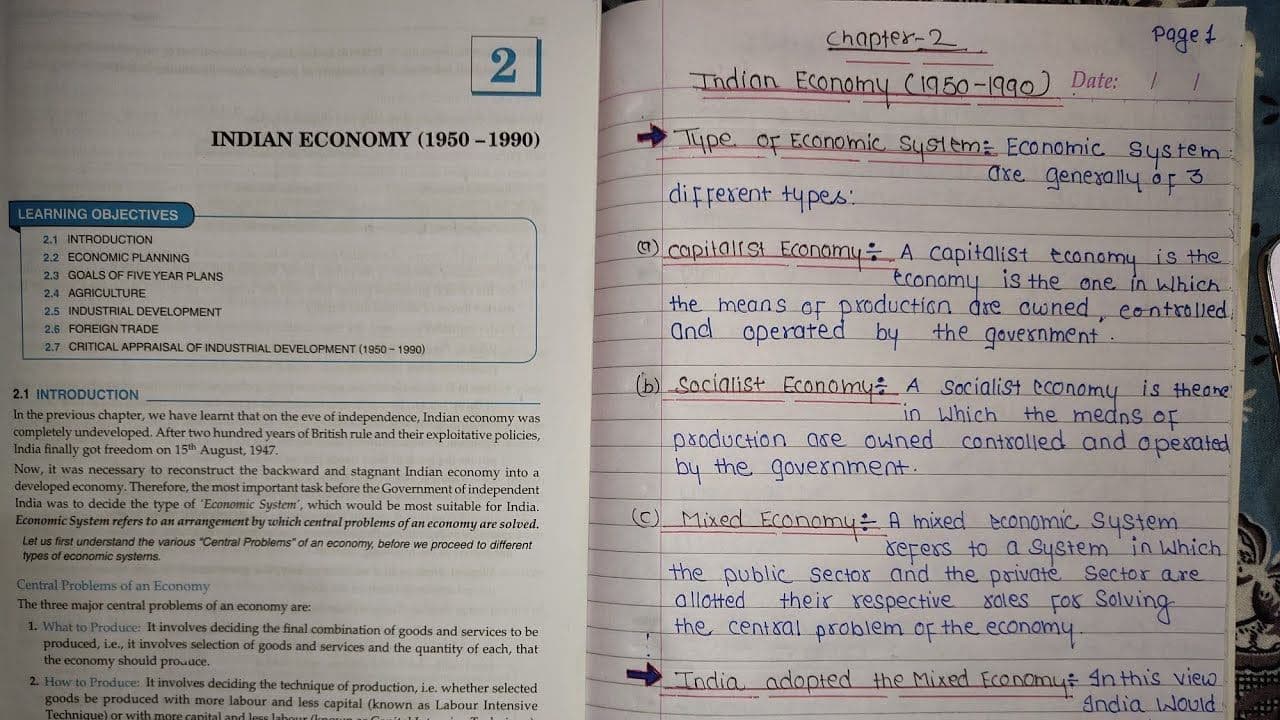 2
INDIAN ECONOMY (1950 – 1990)
LEARNING OBJECTIVES
2.1 INTRODUCTION
2.2 ECONOMIC PLANNING
2.3 GOALS OF FIVE YEAR PLANS
2.4 AGRICULTURE
2.5 INDUSTRIAL DEVELOPMENT
2.6 FOREIGN TRADE
2.7 CRITICAL APPRAISAL OF INDUSTRIAL DEVELOPMENT (1950 – 1990)
2.1 INTRODUCTION
In the previous chapter, we have learnt that on the eve of independence, Indian economy was
completely undeveloped. After two hundred years of British rule and their exploitative policies,
India finally got freedom on 15th August, 1947.
Now, it was necessary to reconstruct the backward and stagnant Indian economy into a
developed economy. Therefore, the most important task before the Government of independent
India was to decide the type of ‘Economic System’, which would be most suitable for India.
Economic System refers to an arrangement by which central problems of an economy are solved.
Let us first understand the various “Central Problems” of an economy, before we proceed to different
types of economic systems.
Central Problems of an Economy
The three major central problems of an economy are:
1. What to Produce: It involves deciding the final combination of goods and services to be
produced, i.e., it involves selection of goods and services and the quantity of each, that
the economy should produce.
2. How to Produce: It involves deciding the technique of production, i.e. whether selected
goods be produced with more labour and less capital (known as Labour Intensive
Technique) or with more capital and less labour (known as Capital
Page 1
Chapter-2
Indian Economy (1950-1990) Date: / /
Type of Economic System:- Economic System
are generally of 3
different types:
(a) Capitalist Economy:- A capitalist economy is the
economy is the one in which
the means of production are owned, controlled
and operated by the government.
(b) Socialist Economy:- A socialist economy is the one
in which the means of
production are owned controlled and operated
by the government.
(c) Mixed Economy:- A mixed economic System
refers to a System in which
the public sector and the private sector are
allotted their respective roles for Solving
the central problem of the economy.
India adopted the Mixed Economy:- In this view
India would